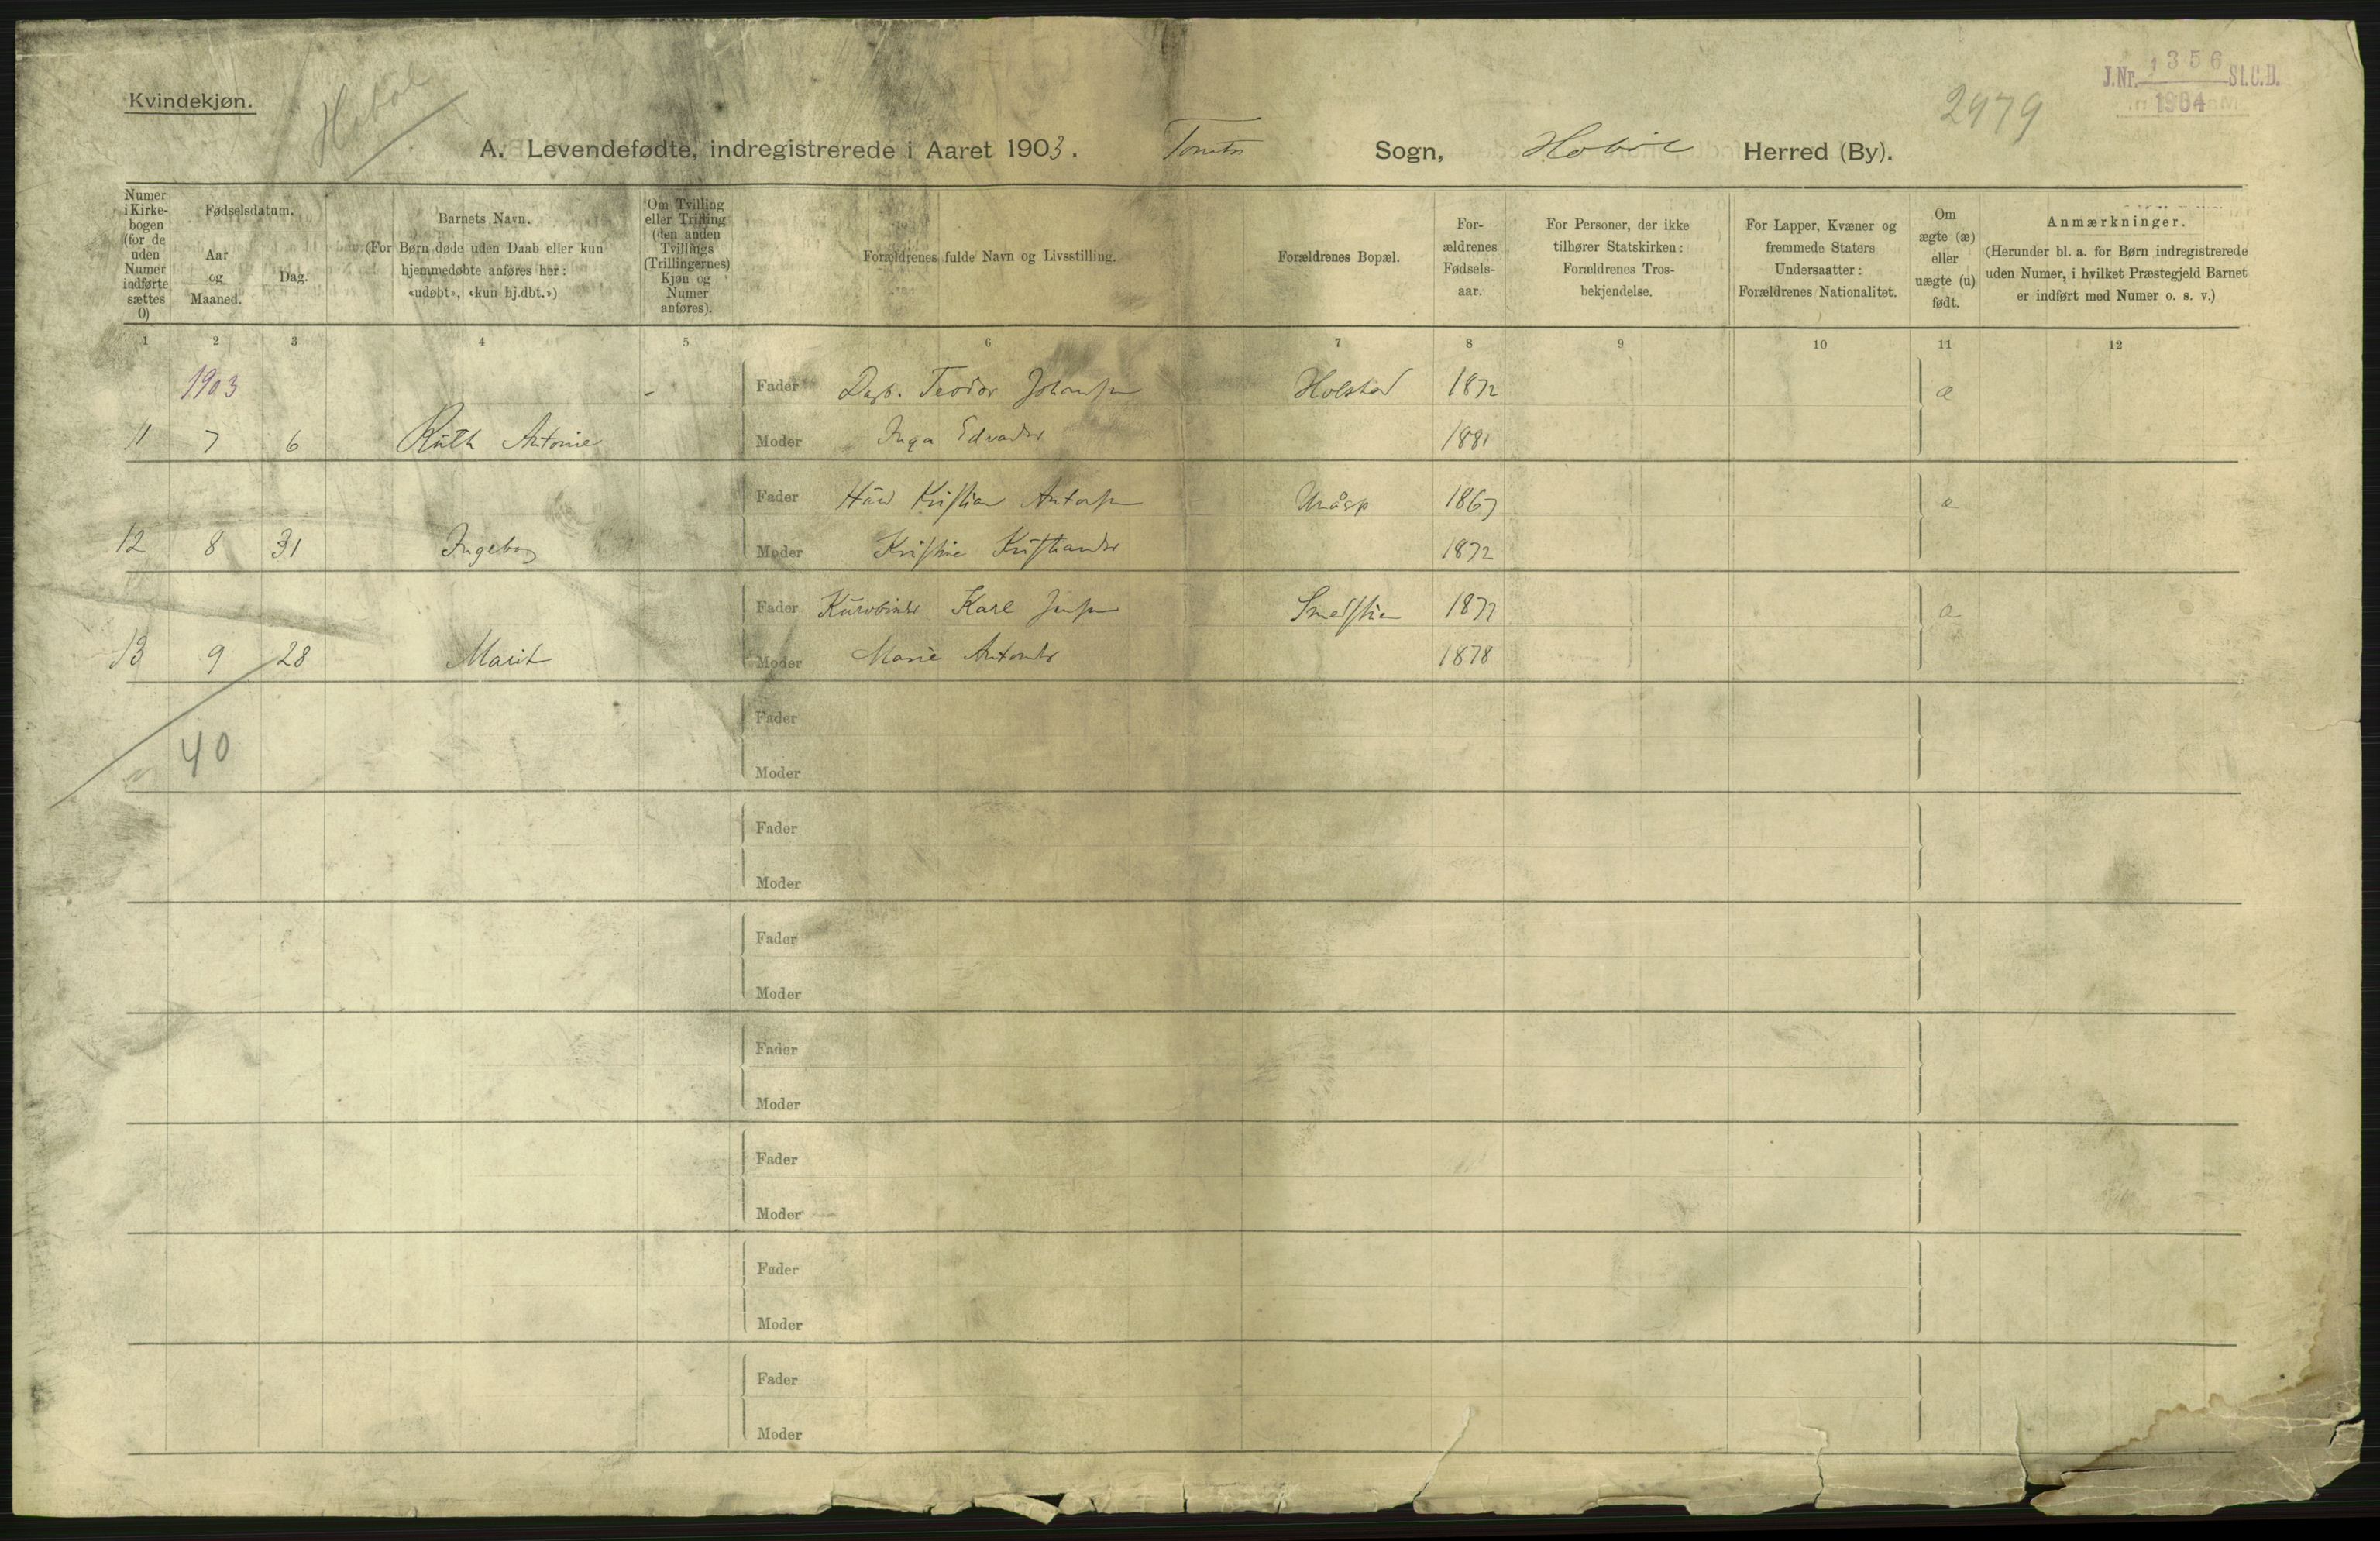 Kvindekjøn.
Hobøl
2979
J.Nr. 1356 St.C.D.
1904
A. Levendefødte, indregistrerede i Aaret 1903. Tomter Sogn, Hobøl Herred (By).
Numer i Kirkebogen (for de uden Numer indførte sættes 0)
Fødselsdatum.
Aar og Maaned.
Dag.
Barnets Navn.
(For Børn døde uden Daab eller kun hjemmedøbte anføres her: «udøbt», «kun hj.dbt.»)
Om Tvilling eller Trilling (den anden Tvillings (Trillingernes) Kjøn og Numer anføres).
Forældrenes fulde Navn og Livsstilling.
Forældrenes Bopæl.
Forældrenes Fødselsaar.
For Personer, der ikke tilhører Statskirken: Forældrenes Trosbekjendelse.
For Lapper, Kvæner og fremmede Staters Undersaatter: Forældrenes Nationalitet.
Om ægte (æ) eller uægte (u) født.
Anmærkninger.
(Herunder bl. a. for Børn indregistrerede uden Numer, i hvilket Præstegjeld Barnet er indført med Numer o. s. v.)
1 2 3 4 5 6 7 8 9 10 11 12
1903 - Fader Teodor Johansen Holstad 1872 æ
11 7 6 Ruth Antonie Moder Inga 1881
Fader Kristian Antonsen 1867 æ
12 8 31 Ingeborg Moder Kristine 1872
Fader Karl Jensen 1877 æ
13 9 28 Marit Moder Marie 1878
Fader
40
Moder
Fader
Moder
Fader
Moder
Fader
Moder
Fader
Moder
Fader
Moder
Fader
Moder